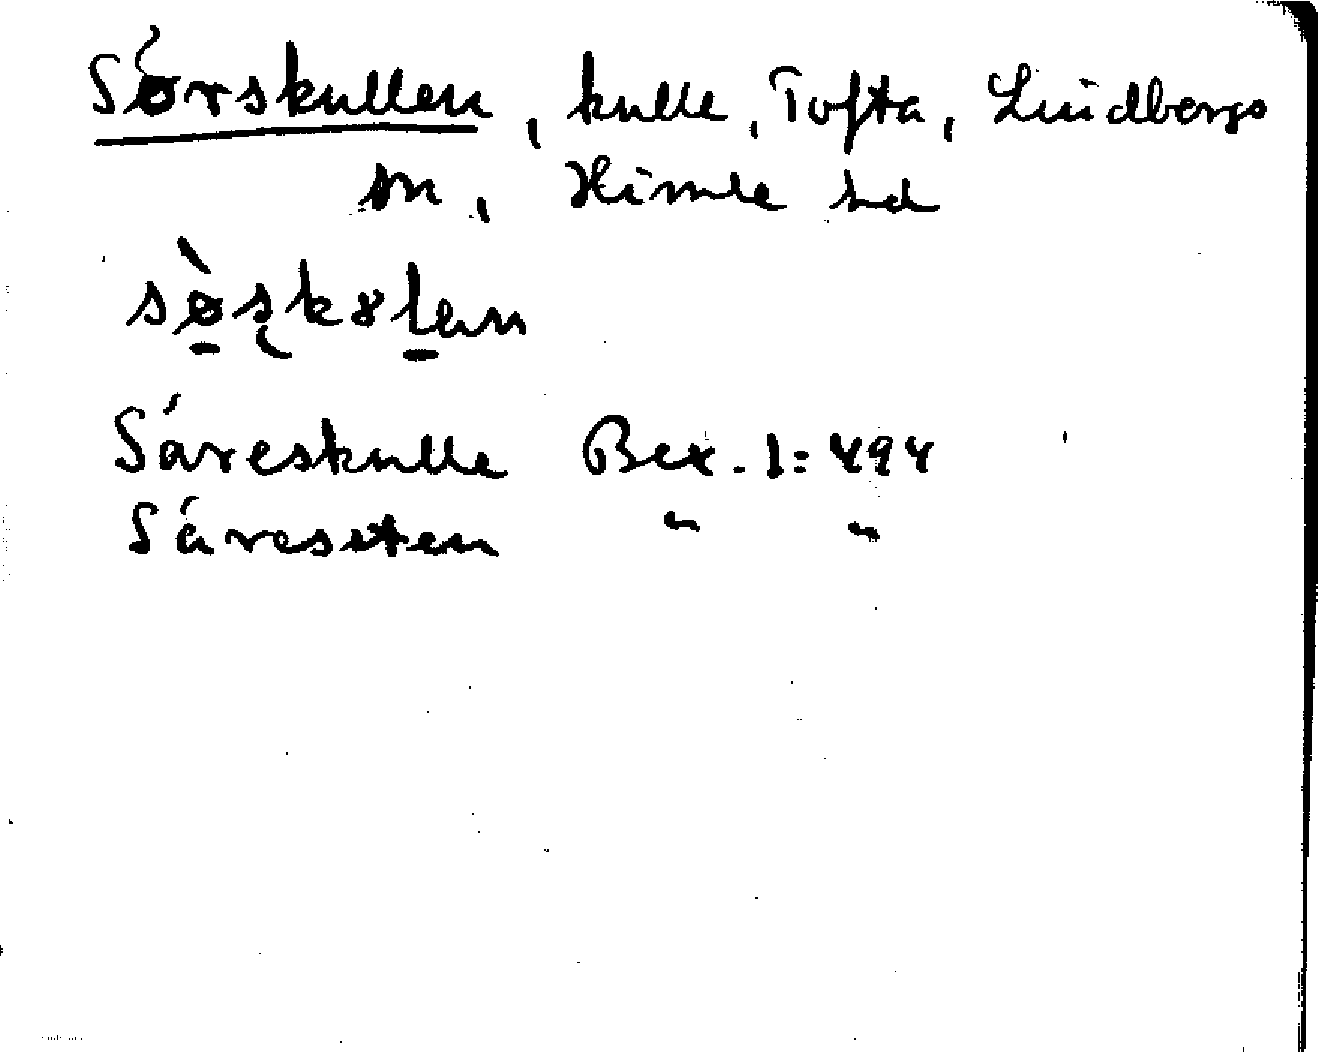 Sórskullen, kulle, Tofta, Lindbergs
sn, Himle hd
Såreskulle Bex. 1:494
Såressten " "